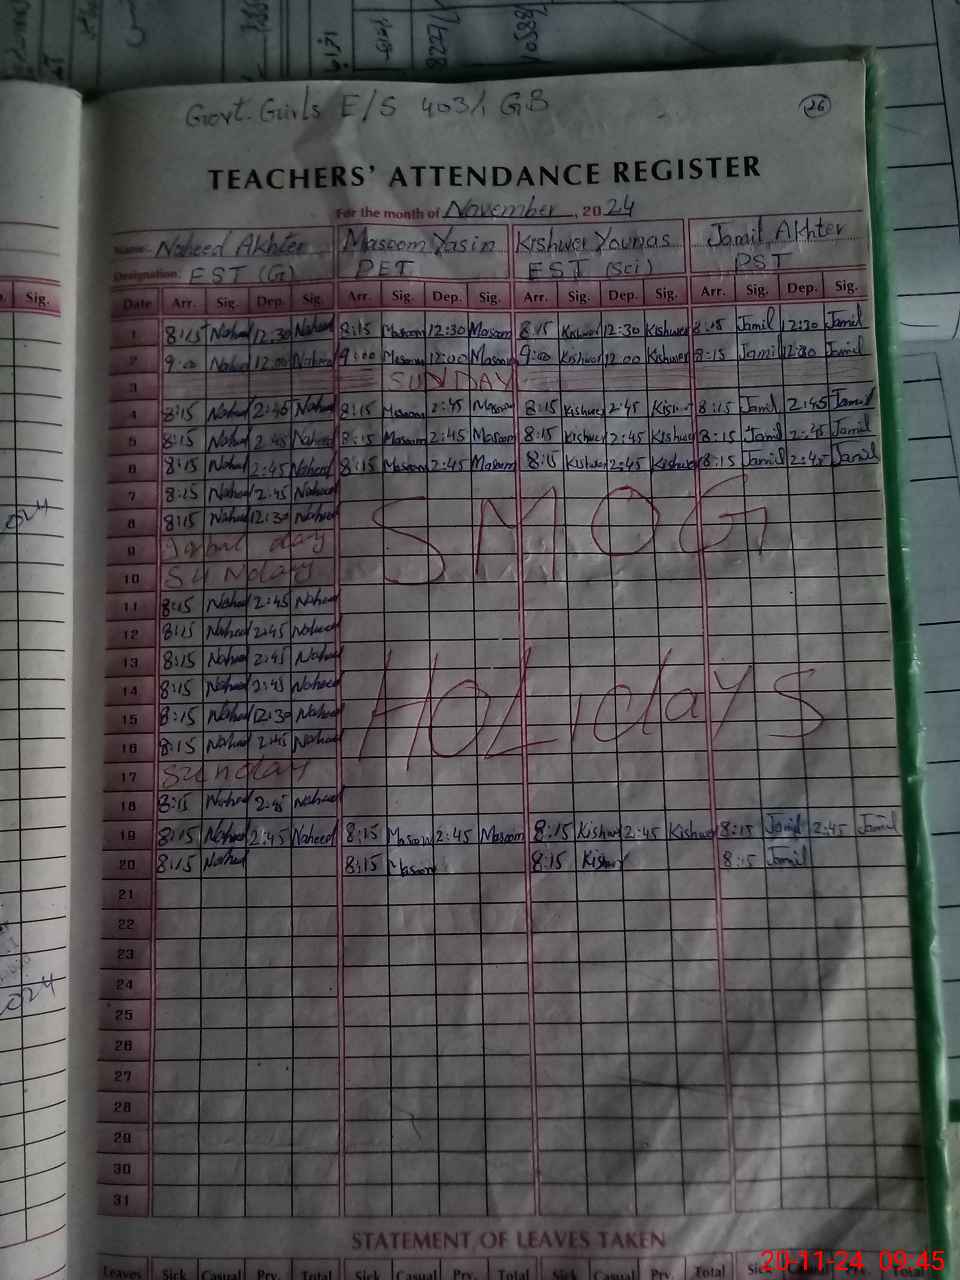 Govt. Girls E/S 403/ GB
26
TEACHERS' ATTENDANCE REGISTER
For the month of November, 2024
Name: Naheed Akhter Masoom Yasin Kishwer Younas Jamil Akhter
Designation: EST (G) PET EST (Sci) PST
Sig.
Date Arr. Sig. Dep. Sig. Arr. Sig. Dep. Sig. Arr. Sig. Dep. Sig. Arr. Sig. Dep. Sig.
1 8:15 Naheed 12:30 Naheed 8:15 Masoom 12:30 Masoom 8:15 Kishwer 12:30 Kishwer 8:15 Jamil 12:30 Jamil
2 9:00 Naheed 12:00 Naheed 9:00 Masoom 12:00 Masoom 9:00 Kishwer 12:00 Kishwer 8:15 Jamil Jamil
3 SUNDAY
4 8:15 Naheed 2:45 Naheed 8:15 Masoom 2:45 Masoom 8:15 Kishwer 2:45 Kishwer 8:15 Jamil 2:45 Jamil
5 8:15 Naheed 2:45 Naheed 8:15 Masoom 2:45 Masoom 8:15 Kishwer 2:45 Kishwer 8:15 Jamil 2:45 Jamil
6 8:15 Naheed 2:45 Naheed 8:15 Masoom 2:45 Masoom 8:15 Kishwer 2:45 Kishwer 8:15 Jamil 2:45 Jamil
7 8:15 Naheed 2:45 Naheed
SMOG
8 8:15 Naheed 12:30 Naheed
9 Iqbal day
10 Sunday
11 8:15 Naheed 2:45 Naheed
12 8:15 Naheed 2:45 Naheed
13 8:15 Naheed 2:45 Naheed
14 8:15 Naheed 2:45 Naheed
HOLidayS
15 8:15 Naheed 12:30 Naheed
16 8:15 Naheed 2:45 Naheed
17 Sunday
18 8:15 Naheed 2:45 Naheed
19 8:15 Naheed 2:45 Naheed 8:15 Masoom 2:45 Masoom 8:15 Kishwer 2:45 Kishwer 8:15 Jamil 2:45 Jamil
20 8:15 Naheed 8:15 Masoom 8:15 Kishwer 8:15 Jamil
21
22
23
24
25
26
27
28
29
30
31
STATEMENT OF LEAVES TAKEN
Leaves Sick Casual Prv. Total Sick Casual Prv. Total Sick Casual Prv. Total Sick Total
20-11-24 09:45